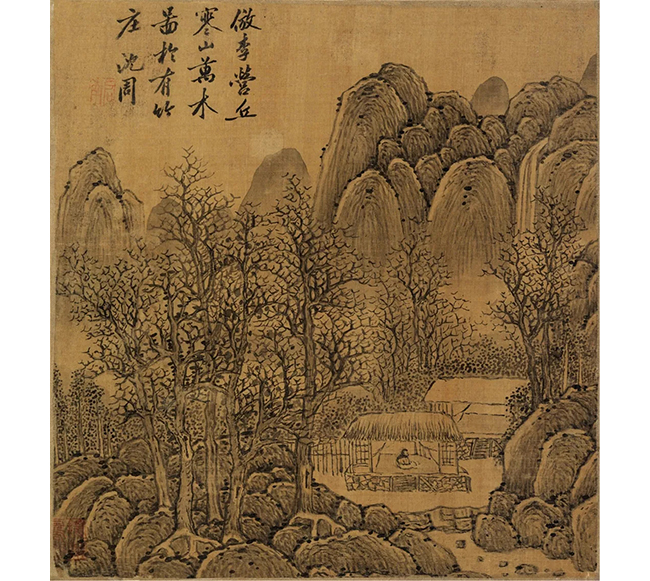 倣李營丘
寒山萬木
啚於有竹
庄 沈周